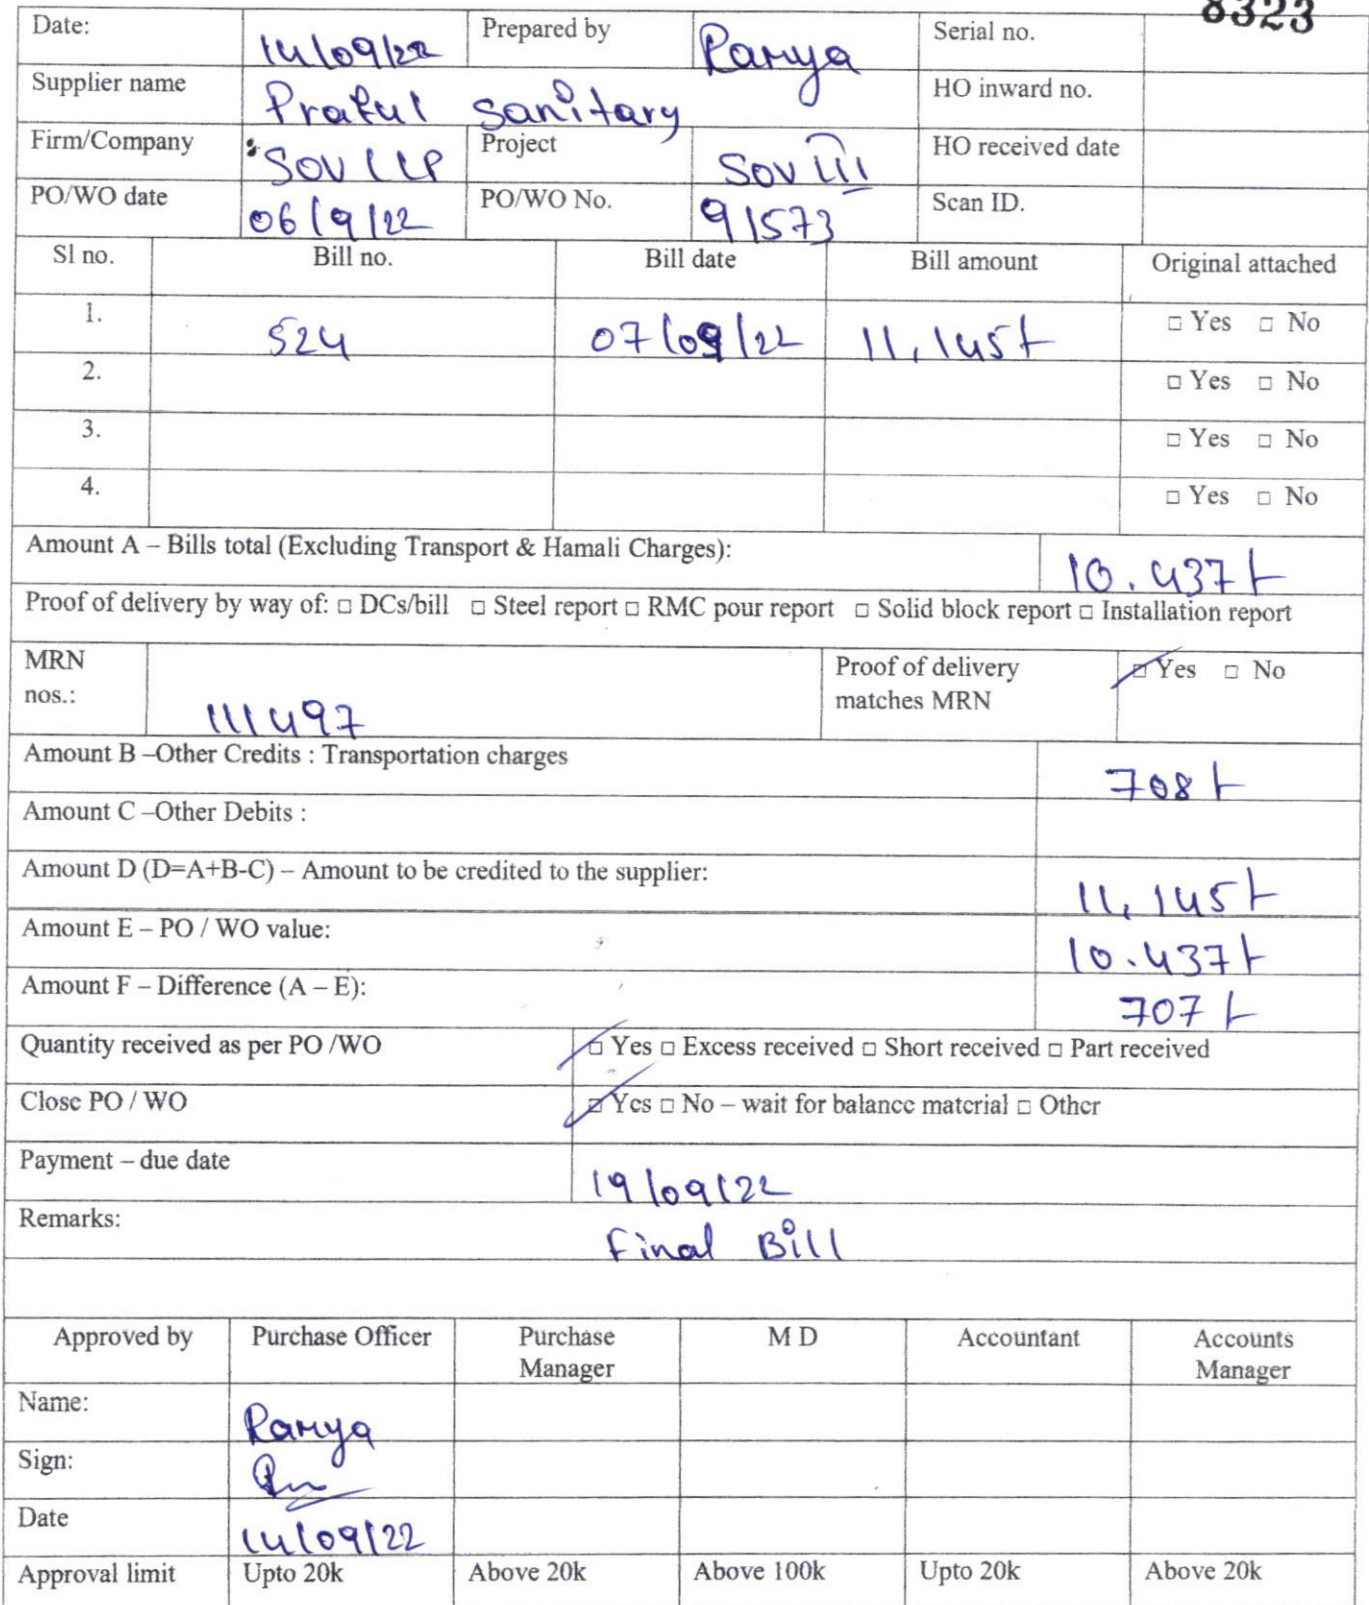 8323
Date: 14/09/22 Prepared by Ramya Serial no.
Supplier name Praful sanitary HO inward no.
Firm/Company SOV LLP Project SOV III HO received date
PO/WO date 06/9/22 PO/WO No. 91573 Scan ID.
Sl no. Bill no. Bill date Bill amount Original attached
1. 524 07/09/22 11,145/- □ Yes □ No
2. □ Yes □ No
3. □ Yes □ No
4. □ Yes □ No
Amount A – Bills total (Excluding Transport & Hamali Charges): 10.437/-
Proof of delivery by way of: □ DCs/bill □ Steel report □ RMC pour report □ Solid block report □ Installation report
MRN nos.: 111497 Proof of delivery matches MRN □ Yes □ No
Amount B –Other Credits : Transportation charges 708/-
Amount C –Other Debits :
Amount D (D=A+B-C) – Amount to be credited to the supplier: 11,145/-
Amount E – PO / WO value: 10.437/-
Amount F – Difference (A – E): 707/-
Quantity received as per PO /WO □ Yes □ Excess received □ Short received □ Part received
Close PO / WO □ Yes □ No – wait for balance material □ Other
Payment – due date 19/09/22
Remarks: Final Bill
Approved by Purchase Officer Purchase Manager M D Accountant Accounts Manager
Name: Ramya
Sign:
Date 14/09/22
Approval limit Upto 20k Above 20k Above 100k Upto 20k Above 20k